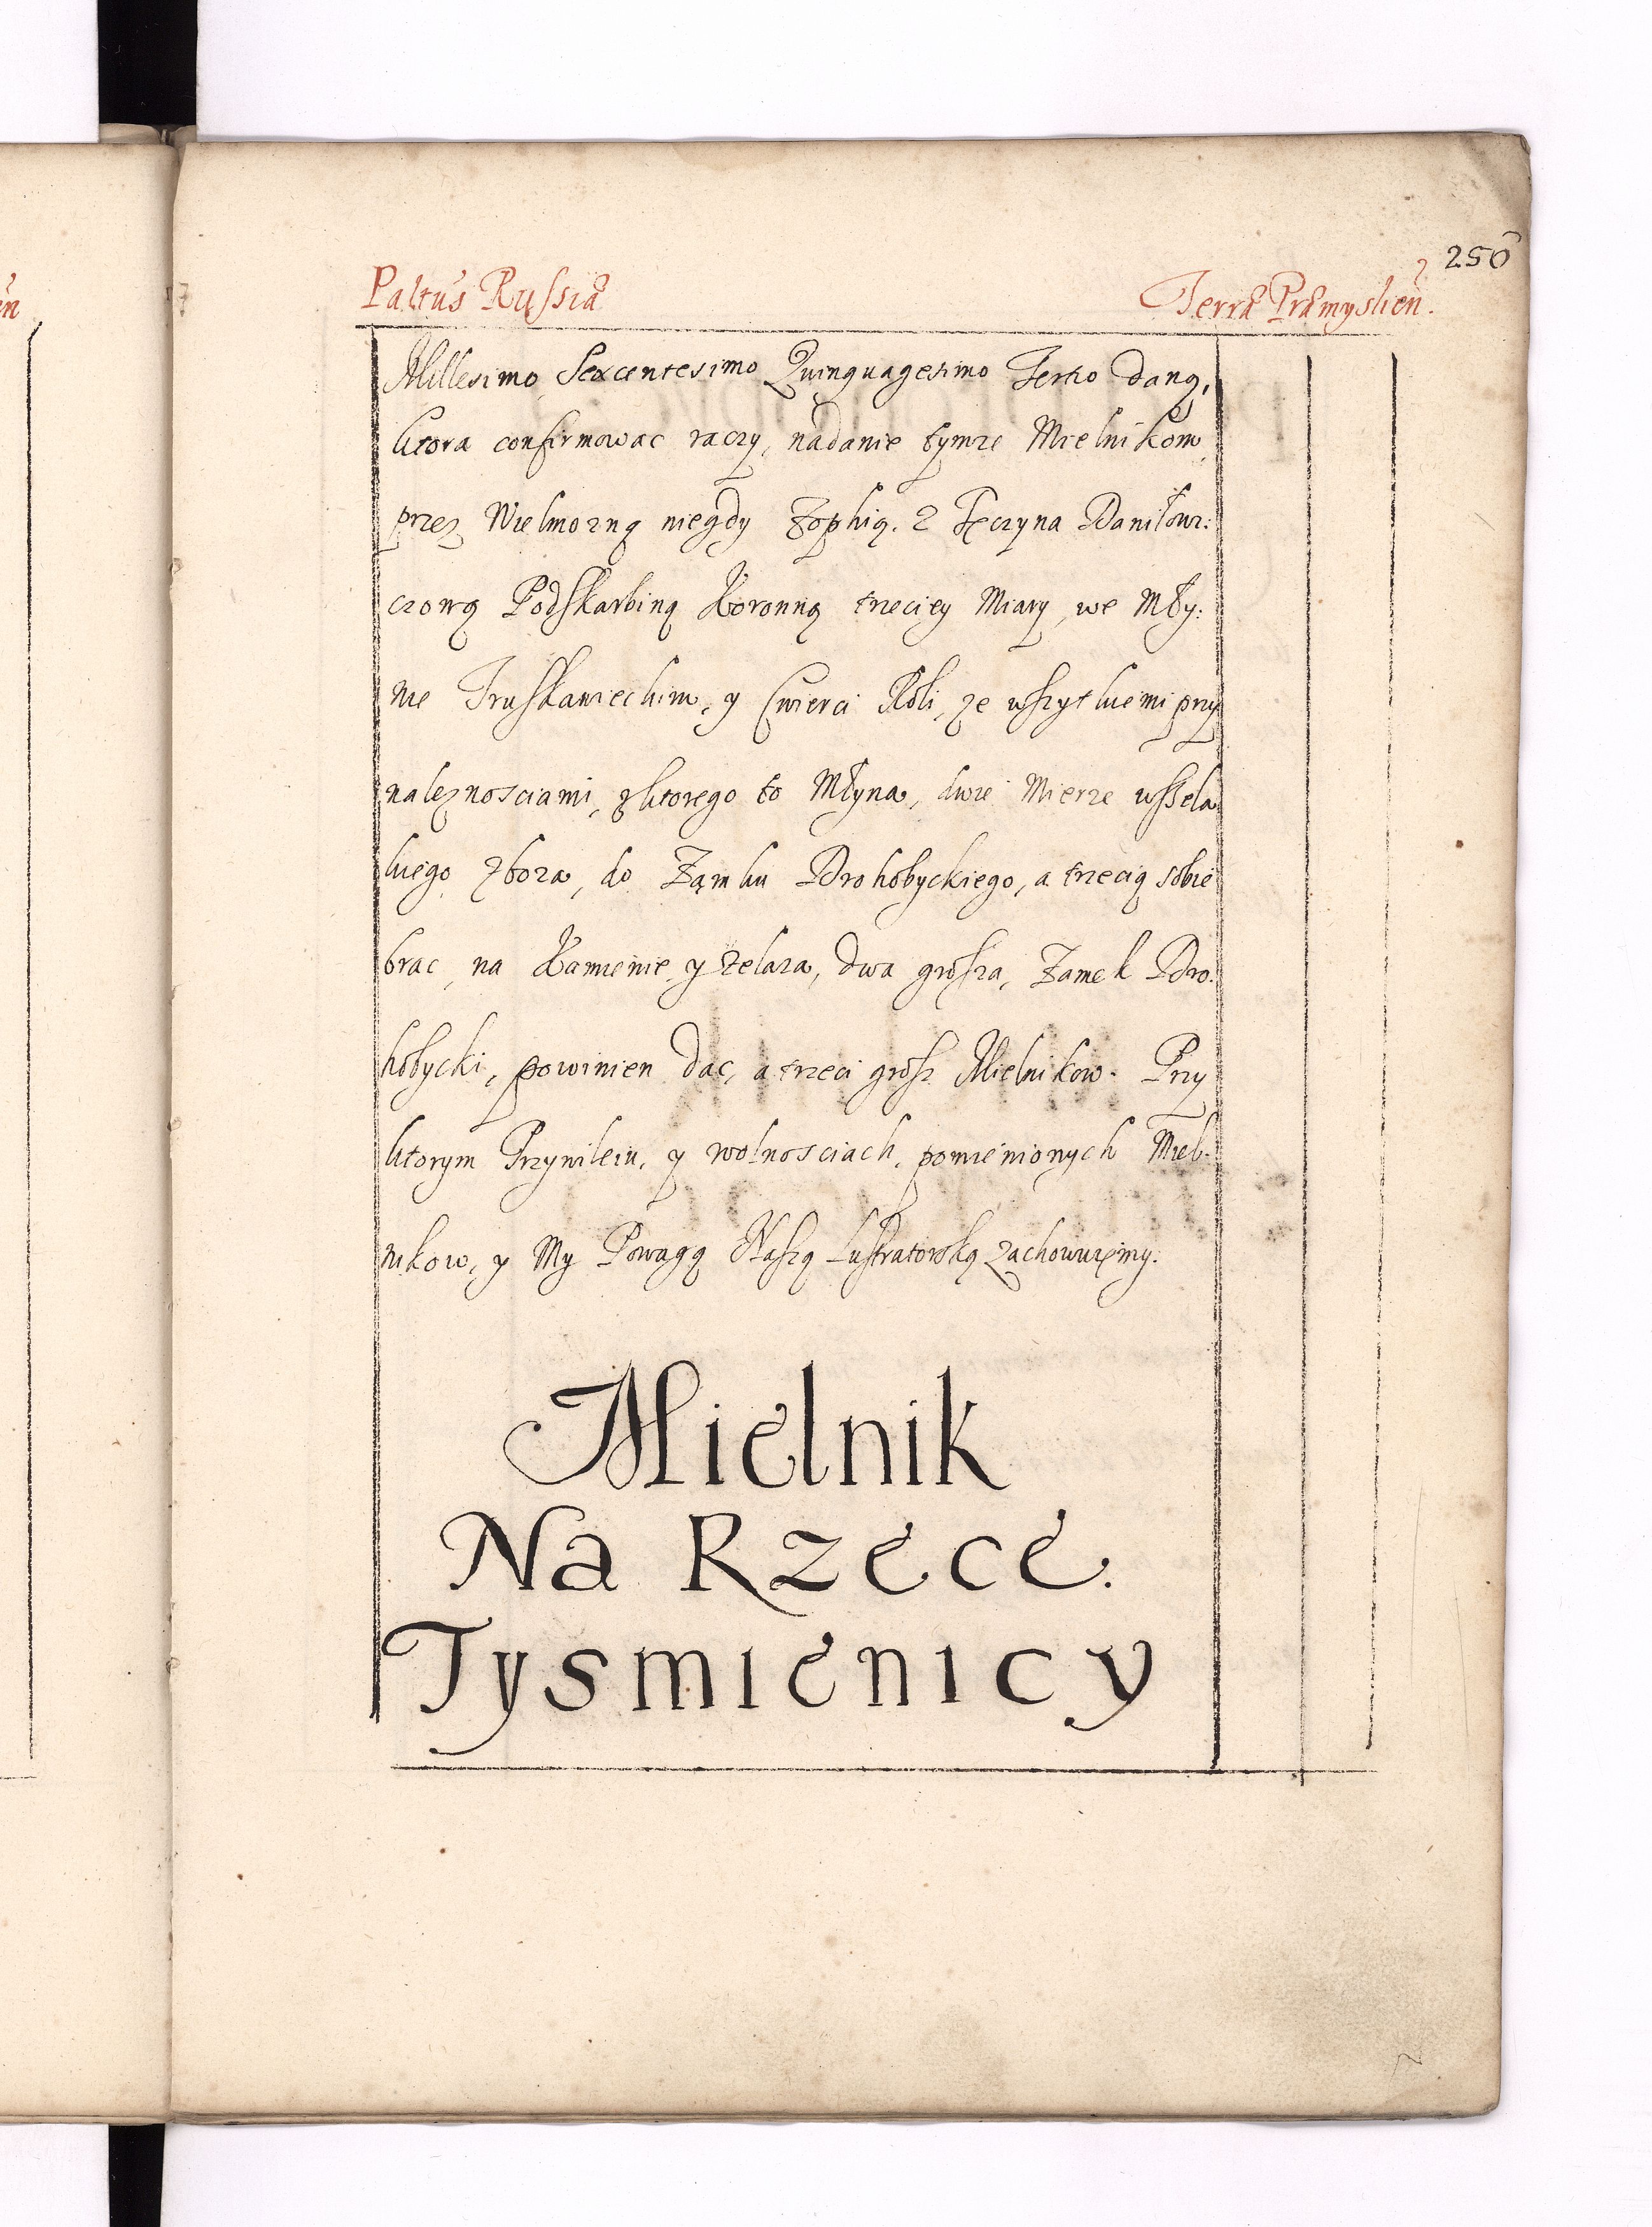 250
Paltus Russiæ Terræ Præmyslien.
Millesimo Sexcentesimo Quinquagesimo Tertio daną,
ktora confirmowac raczy, nadanie tymze Mielnikom,
przez Wielmozną niegdy Zophią. z Tęczyna Daniłowi:
czową Podskarbiną Koronną trzeciey Miary, we Mły:
nie Truskawieckim, y Cwierci Roli, ze wszytkiemi przy
naleznosciami, z ktorego to Młyna, dwie Mierze wszela
kiego zboza, do Zamku Drohobyckiego, a trzecią sobie
brac, na Kamienie y zelaza, dwa grosza, Zamek Dro:
hobycki, powinien dac, a trzeci grosz Mielnikow. Przy
ktorym Przywileiu, y wolnosciach, pomienionych Miel-
nikow, y My Powagą Naszą Lustratorską zachowuiemy.
Mielnik
Na Rzece.
Tysmienicy